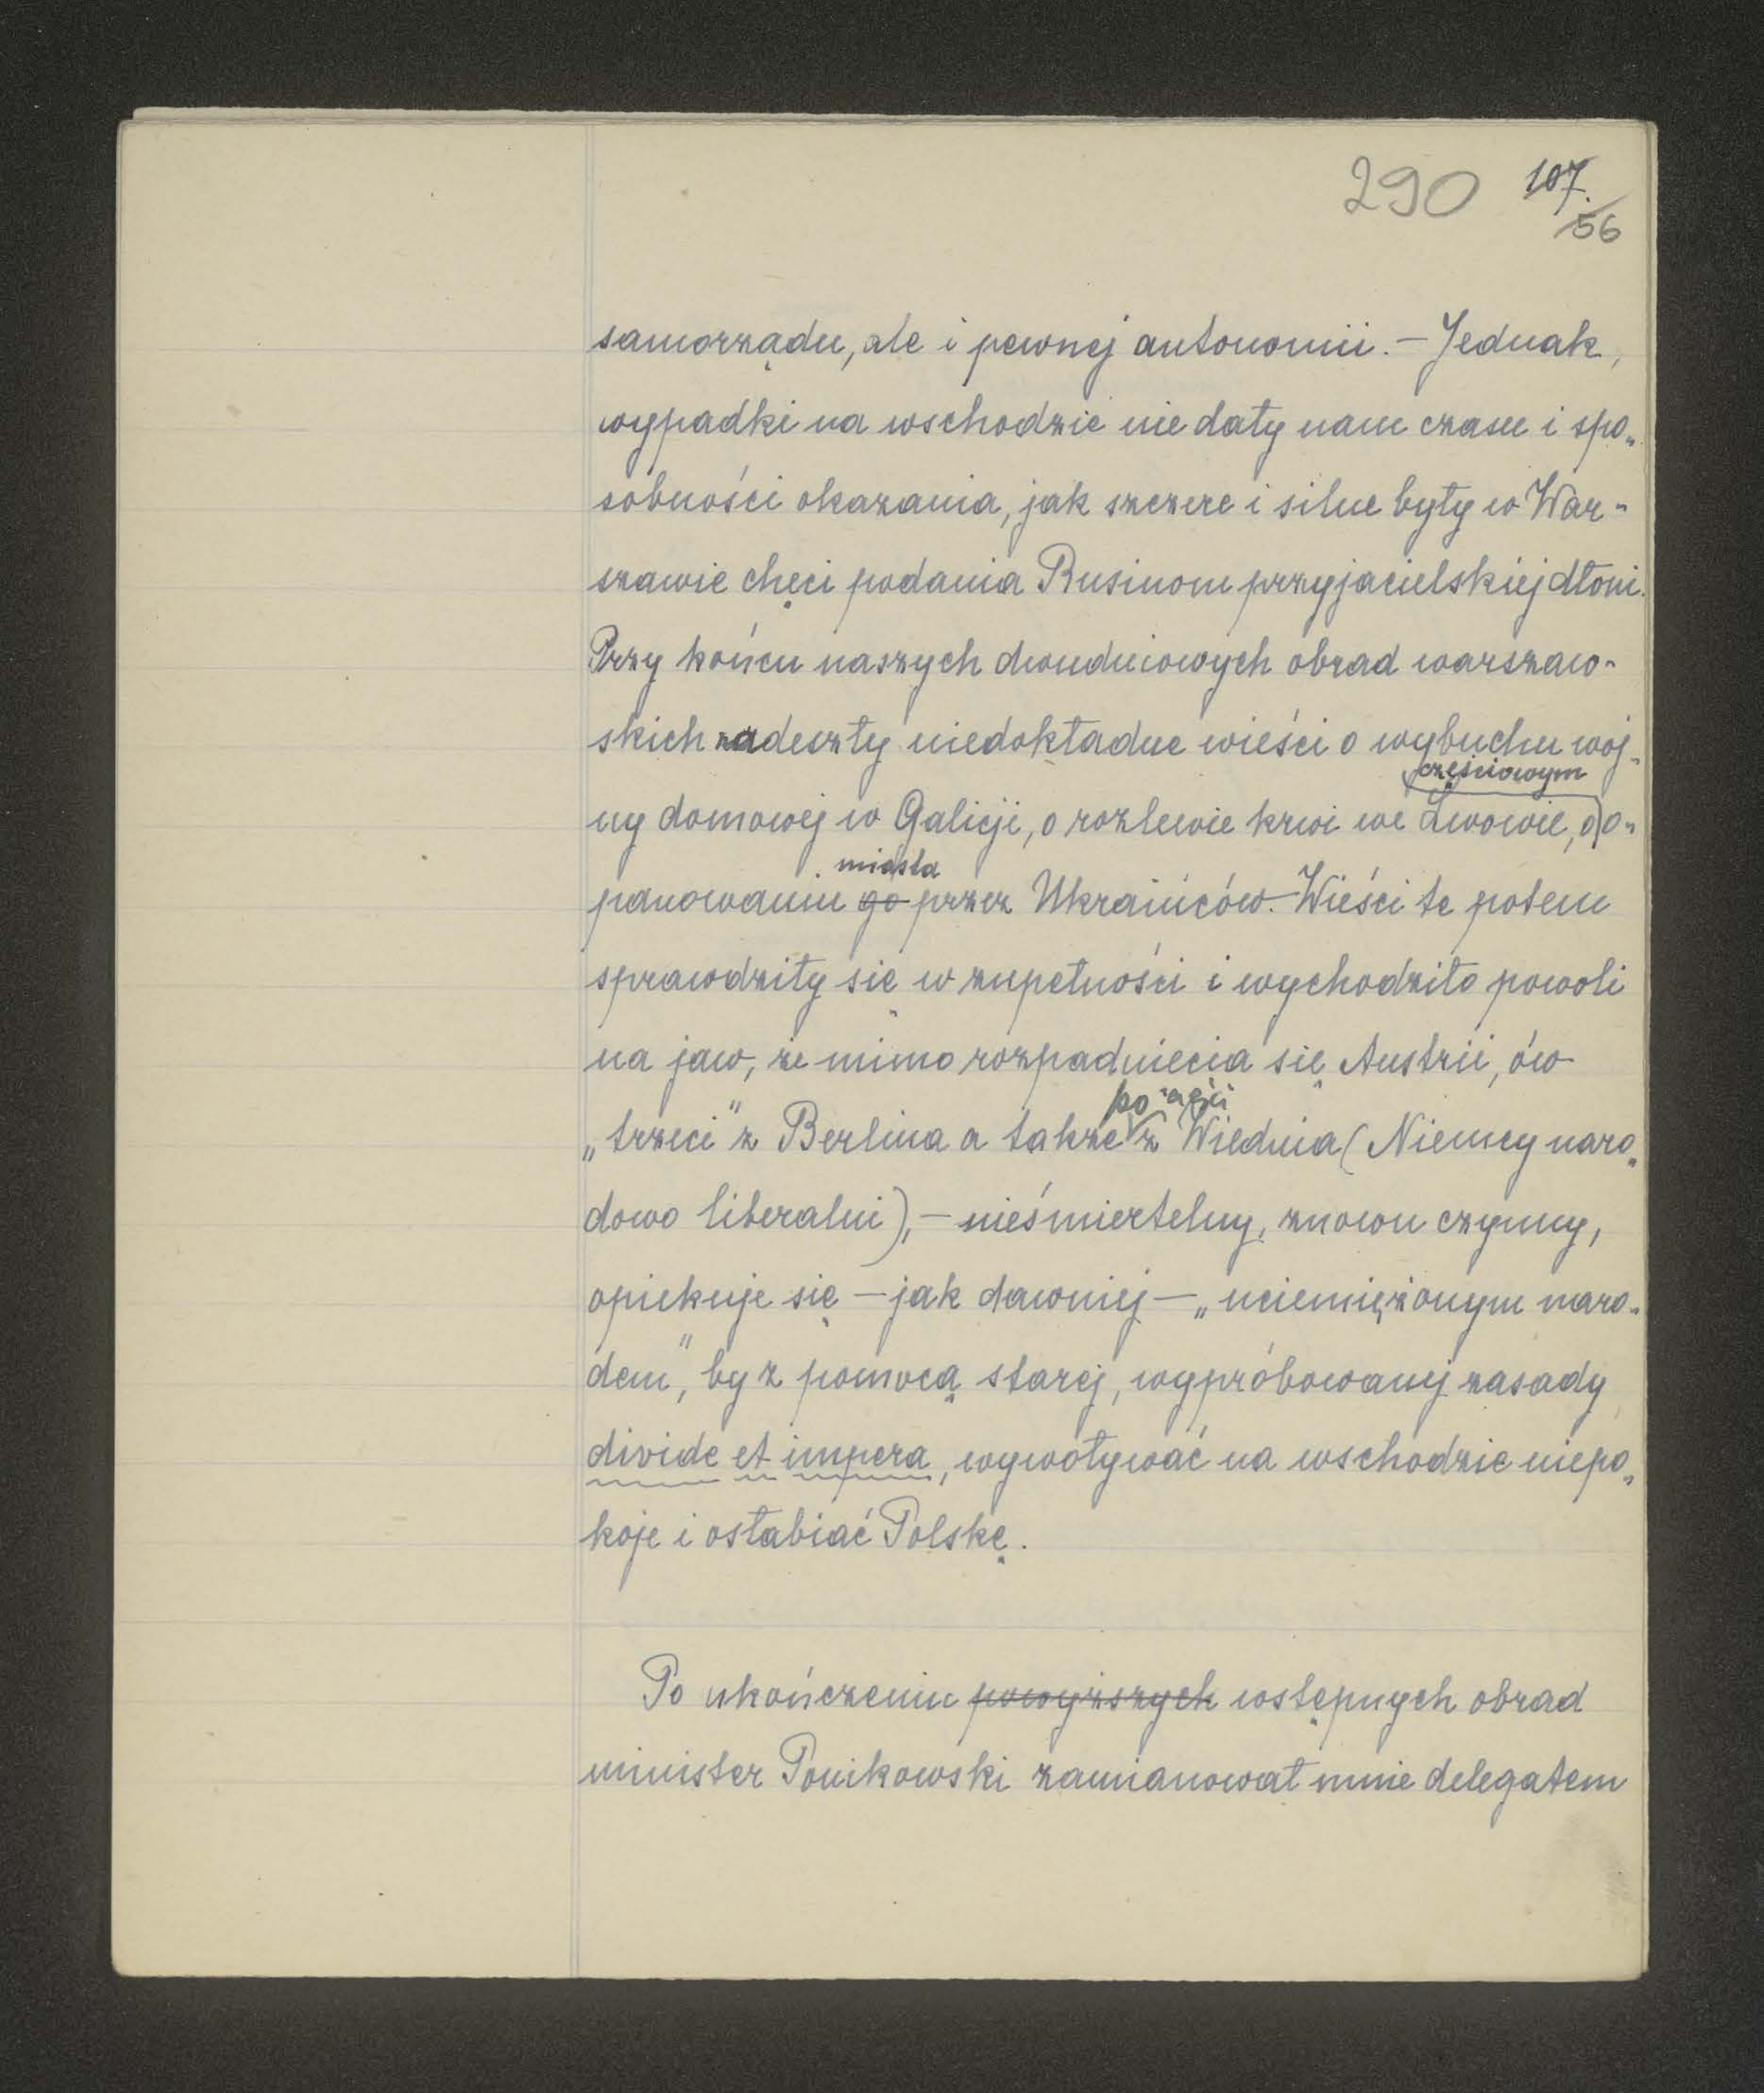 290 107.
56
samorządu, ale i pewnej autonomii. – Jednak,
wypadki na wschodzie nie dały nam czasu i spo„
sobności okazania, jak szczere i silne były w War-
szawie chęci podania Rusinom przyjacielskiej dłoni.
Przy końcu naszych dwudniowych obrad warszaw-
skich nadeszły niedokładne wieści o wybuchu woj-
częściowym
ny domowej w Galicji, o rozlewie krwi we Lwowie, o o-
miasta
panowaniu go przez Ukraińców. – Wieści te potem
sprawdziły się w zupełności i wychodziło powoli
na jaw, że mimo rozpadnięcia się Austrii, ów
„trzeci" z Berlina a także z Wiednia (Niemcy naro„
dowo liberalni), – nieśmiertelny, znowu czynny,
opiekuje się – jak dawniej – „uciemiężonym naro-
dem", by z pomocą starej, wypróbowanej zasady
divide et impera, wywoływać na wschodzie niepo„
koje i osłabiać Polskę.
Po ukończeniu powyższych wstępnych obrad
minister Ponikowski zamianował mnie delegatem